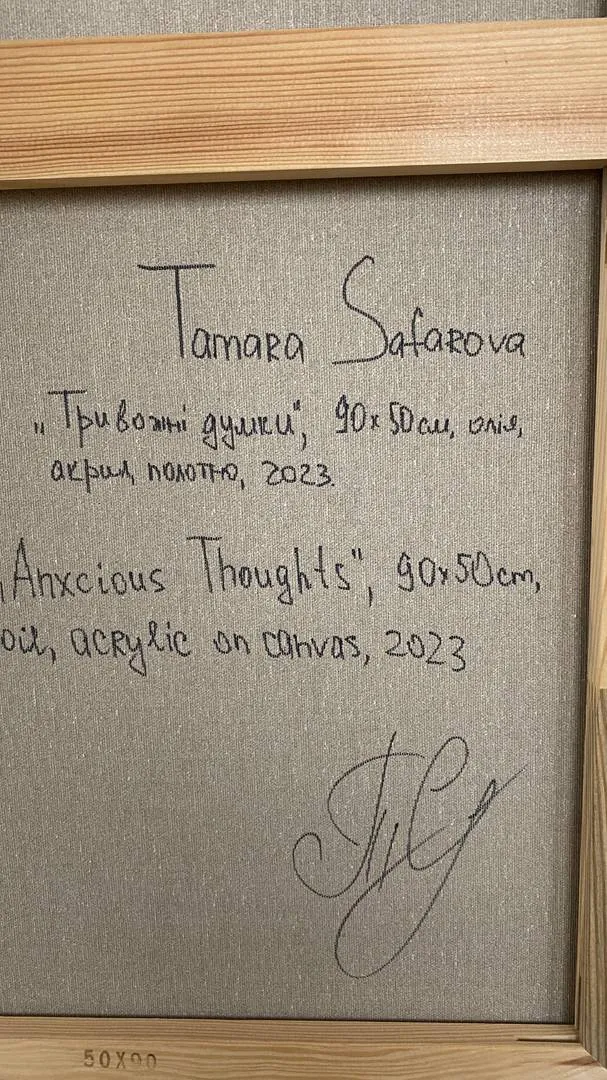 Tamara Safarova
„Тривожні думки", 90x50см, олія,
акрил, полотно, 2023.
„Anxcious Thoughts", 90x50cm,
oil, acrylic on canvas, 2023
50X90